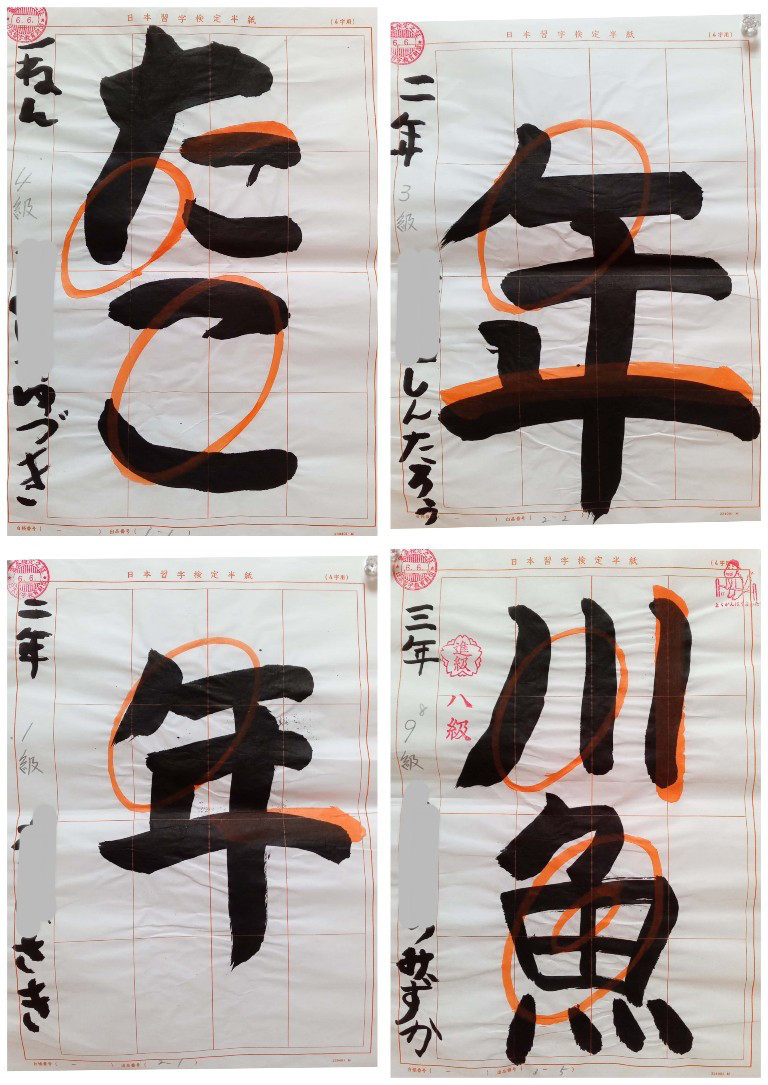 日本習字検定半紙
(4字用)
6.6.
たこ
一ねん
4級
ゆづき
出品番号(1-1)
日本習字検定半紙
(4字用)
6.6.
年
二年
3級
しんたろう
出品番号(2-2)
日本習字検定半紙
(4字用)
6.6.
年
二年
1級
さき
出品番号(2-1)
日本習字検定半紙
(4字用)
6.6.
川魚
三年
進級
八級
8
9級
みずか